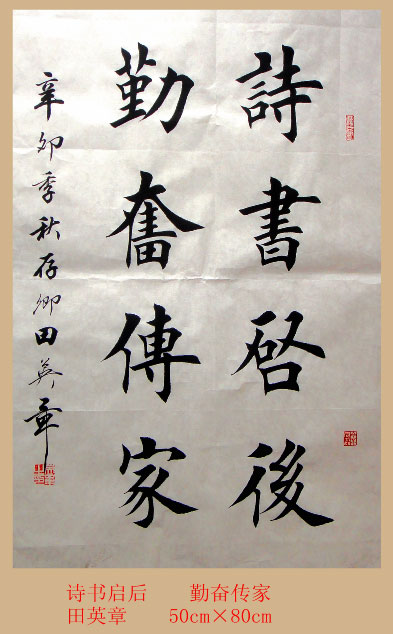 詩書啓後
勤奮傳家
辛卯季秋存卿田英章
诗书启后 勤奋传家
田英章 50cm×80cm